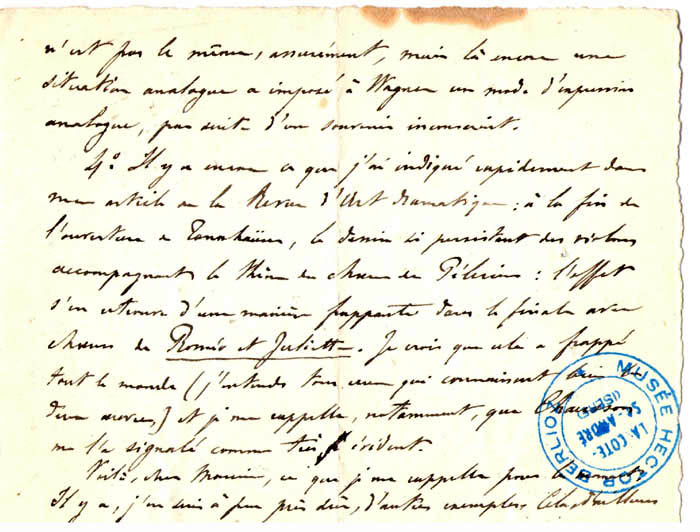 n'est pas le même, assurément, mais là encore une
situation analogue a imposé à Wagner un mode d'expression
analogue, par suite d'un souvenir inconscient.
4° Il y a encore ce que j'ai indiqué rapidement dans
mon article de la Revue d'Art dramatique : à la fin de
l'ouverture de Tannhäuser, le dessin si persistant des violons
accompagnant le thème du chœur des Pélerins : l'effet
s'en retrouve d'une manière frappante dans le finale avec
chœurs de Roméo et Juliette. Je crois que cela a frappé
tout le monde (j'entends tous ceux qui connaissent bien les
deux œuvres) et je me rappelle, notamment, que Chausson
me l'a signalé comme très évident.
Voilà, cher Monsieur, ce que je me rappelle pour le moment.
Il y a, j'en suis à peu près sûr, d'autres exemples.
MUSÉE HECTOR BERLIOZ
LA COTE-
ST-ANDRÉ
ISÈRE